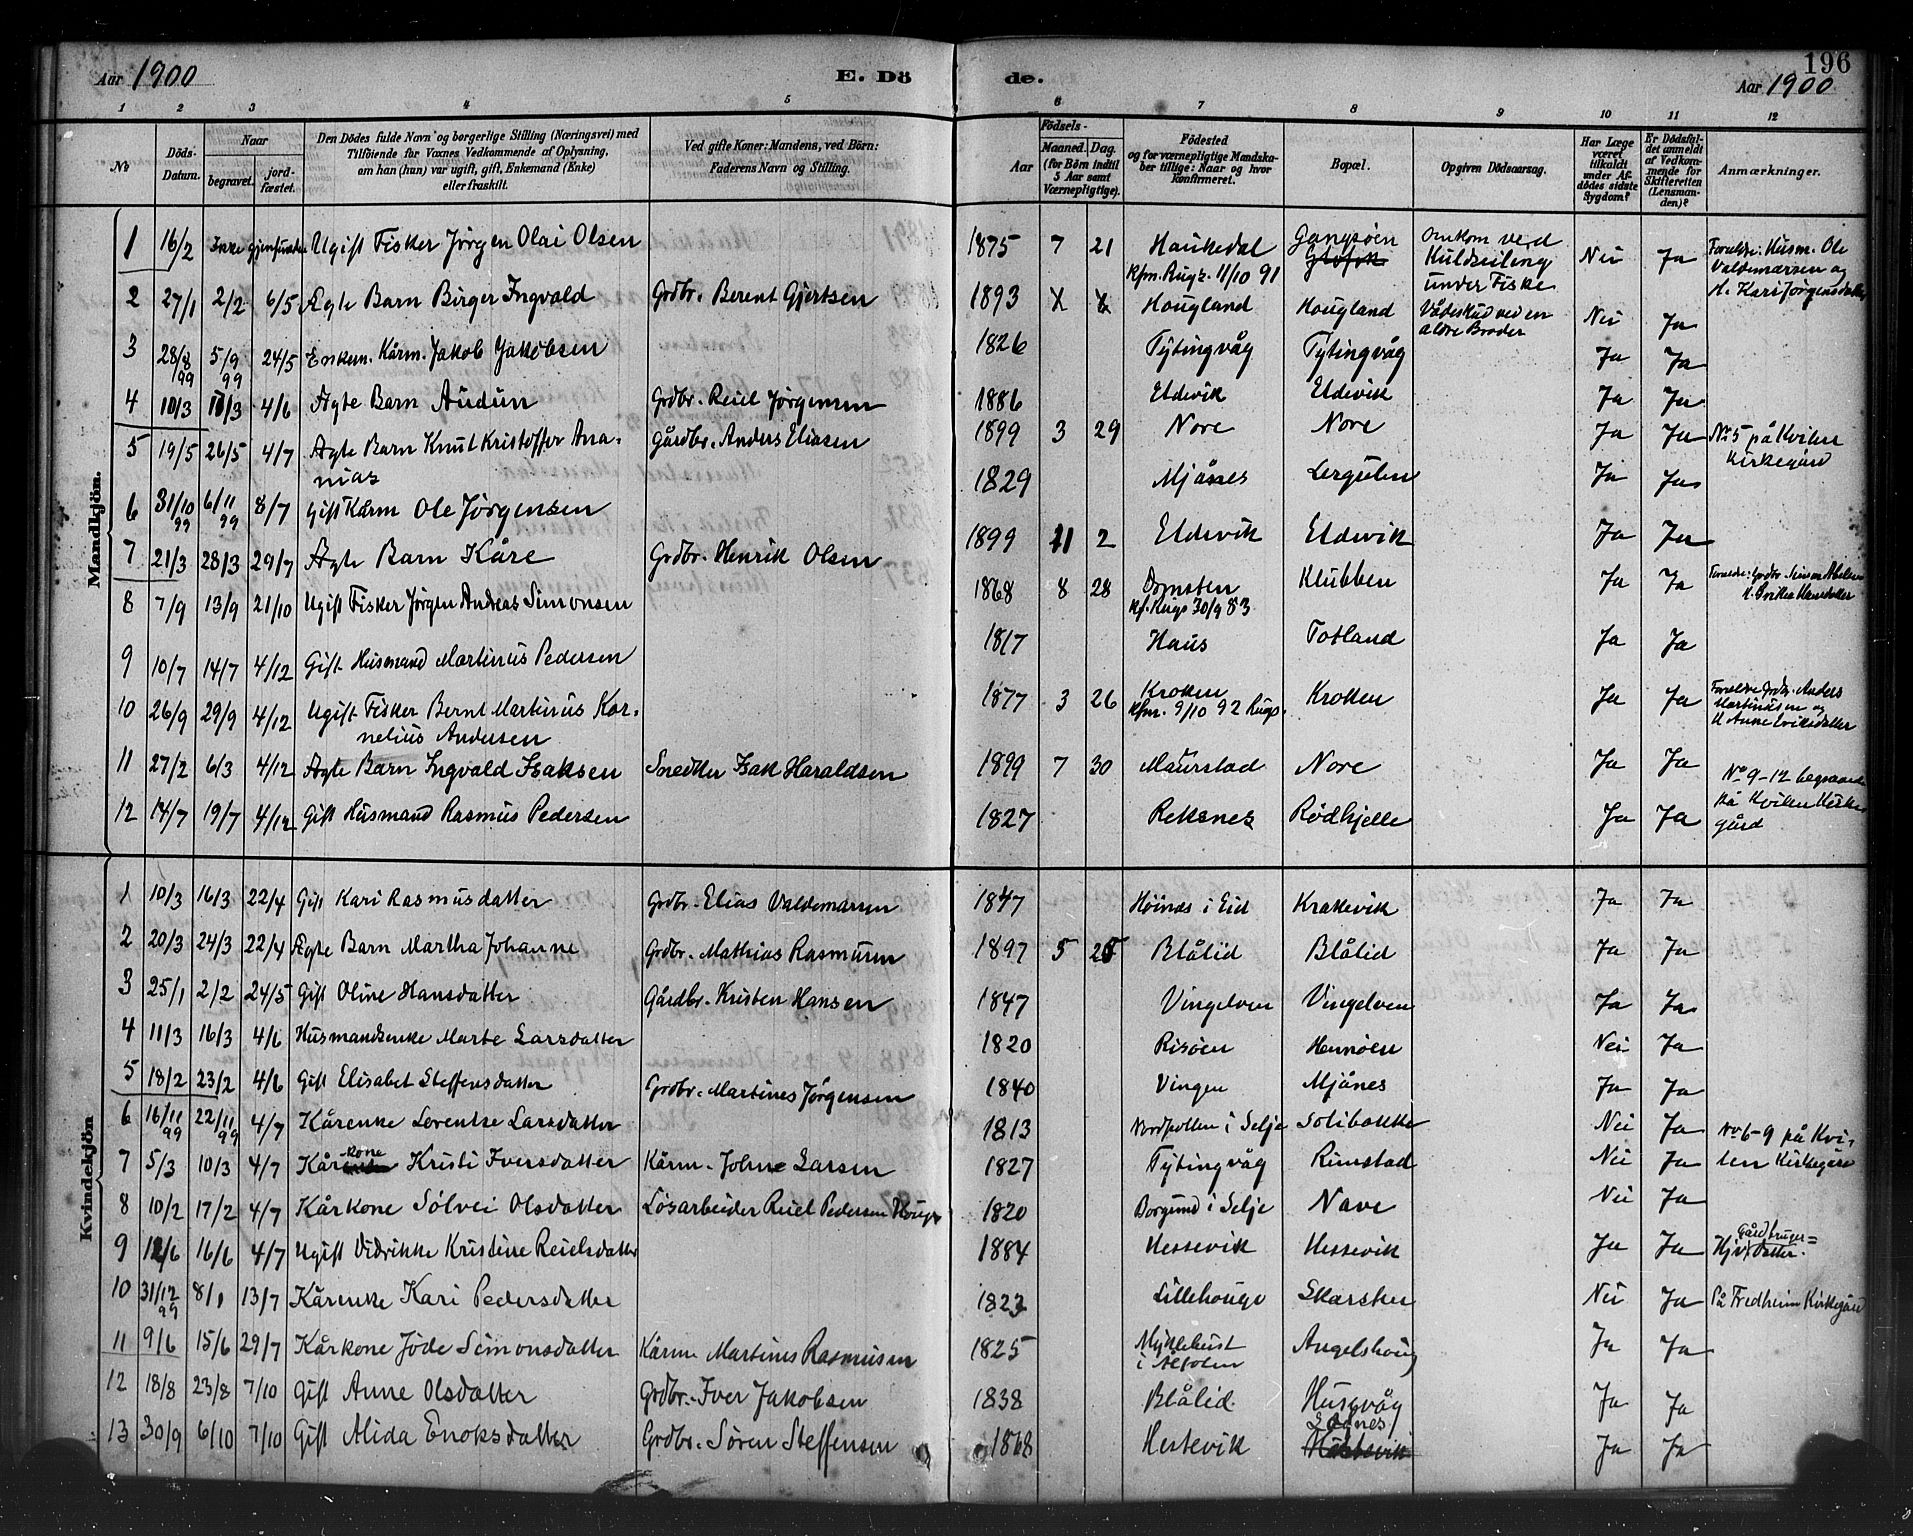 196
Aar 1900 E. Dö de. Aar 1900
1 2 3 4 5 6 7 8 9 10 11 12
№
Döds-Datum.
Naar
begravet.
jord-fæstet.
Den Dödes fulde Navn og borgerlige Stilling (Næringsvei) med
Tilföiende for Voxnes Vedkommende af Oplysning,
om han (hun) var ugift, gift, Enkemand (Enke)
eller fraskilt.
Ved gifte Koner: Mandens, ved Börn:
Faderens Navn og Stilling.
Födsels-
Aar
Maaned. Dag.
(for Börn indtil
5 Aar samt
Værnepligtige).
Födested
og for værnepligtige Mandska-
ber tillige: Naar og hvor
konfirmeret.
Bopæl.
Opgiven Dödsaarsag.
Har Læge
været
tilkaldt
under Af-
dödes sidste
Sygdom?
Er Dödsfal-
det anmeldt
af Vedkom-
mende for
Skifteretten
(Lensman-
den)?
Anmærkninger.
Mandkjön.
1 16/2 Ikke gjenfunden Ugift Fisker Jörgen Olai Olsen 1875 7 21 Haukedal Kfm. Rugs. 11/10 91 Gangsöen Omkom ved Kuldseiling under Fiske Nei Ja Forældre: Husm. Ole Valdemarsen og H. Kari Jörgensdatter
2 27/1 2/2 6/5 Ægte Barn Birger Ingvald Grdbr. Berent Gjertsen 1893 Hougland Hougland Vådeskud ved en ældre Broder Nei Ja
3 28/8 99 5/9 99 24/5 Enkem. Kårm. Jakob Jakobsen 1826 Tytingvåg Tytingvåg Ja Ja
4 10/3 17/3 4/6 Ægte Barn Audun Grdbr. Reiel Jörgensen 1886 Eldevik Eldevik Ja Ja
5 19/5 26/5 4/7 Ægte Barn Knut Kristoffer Ana-
nias Gårdbr. Anders Eliasen 1899 3 29 Nore Nore Ja Ja No 5 på Kvilen Kirkegård
6 31/10 99 6/11 99 8/7 Gift Kårm Ole Jörgensen 1829 Mjånes Lergulen Ja Ja
7 21/3 28/3 29/7 Ægte Barn Kåre Grdbr. Henrik Olsen 1899 11 2 Eldevik Eldevik Ja Ja
8 7/9 13/9 21/10 Ugift Fisker Jörgen Andreas Simonsen 1868 8 28 Domsten Kf. Rugs 30/9 83 Klubben Ja Ja Forældre: Grdbr Simon Abelsen
9 10/7 14/7 4/12 Gift Husmand Martinus Pedersen 1817 Haus Totland Ja Ja
10 26/9 29/9 4/12 Ugift Fisker Bernt Martinus Kor-
nelius Andersen 1877 3 26 Kroken Kfm. 9/10 92 Rugs. Kroken Ja Ja Forældre Grdbr. Anders Martinusen og H Anne Eriksdatter
11 27/2 6/3 4/12 Ægte Barn Ingvald Isaksen Snedker Isak Haraldsen 1899 7 30 Maurstad Nore Ja Ja
12 14/7 19/7 4/12 Gift Husmand Rasmus Pedersen 1827 Reksnes Rödhjelle Ja Ja No 9-12 begravede på Kvilen Kirke gård
Kvindekjön
1 10/3 16/3 22/4 Gift Kari Rasmusdatter Grdbr. Elias Valdemarsen 1847 Höinæs i Eid Krakevik Ja Ja
2 20/3 24/3 22/4 Ægte Barn Martha Johanne Grdbr. Mathias Rasmusen 1897 5 25 Blålid Blålid Ja Ja
3 25/1 2/2 24/5 Gift Oline Hansdatter Gårdbr. Kristen Hansen 1847 Vingelven Vingelven Ja Ja
4 11/3 16/3 4/6 Husmandsenke Marte Larsdatter 1820 Risöen Hennöen Nei Ja
5 18/2 23/2 4/6 Gift Elisabet Steffensdatter Grdbr. Martines Jörgensen 1840 Vingen Mjånes Ja Ja
6 16/11 99 22/11 99 4/7 Kårenke Lorentse Larsdatter 1813 Nordpollen i Selje Solibakke Nei Ja
7 5/3 10/3 4/7 Kårkone Kristi Iversdatter Kårm. Johne Larsen 1827 Tytingvåg Rimstad Nei Ja No 6-9 på Kvi-
len Kirkegård
8 10/2 17/2 4/7 Kårkone Sölvei Olsdatter Lösarbeider Reiel Pedersen 1820 Borgund i Selje Nave Nei Ja
9 12/6 16/6 4/7 Ugift Didrikke Kristine Reielsdatter 1884 Hessevik Hessevik Ja Ja Gårdbruger= datter.
10 31/12 99 8/1 13/7 Kårenke Kari Pedersdatter 1823 Lillehouge Skarsten Nei Ja På Fredheim Kirkegård
11 9/6 15/6 29/7 Kårkone Jöde Simonsdatter Kårm Martines Rasmusen 1825 Myklebust i Ålfoten Angelshoug Ja Ja
12 18/8 23/8 7/10 Gift Anne Olsdatter Grdbr. Iver Jakobsen 1838 Blålid Husevåg Ja Ja
13 30/9 6/10 7/10 Gift Alida Enoksdatter Grdbr. Sören Steffensen 1868 Hestevik Ja Ja